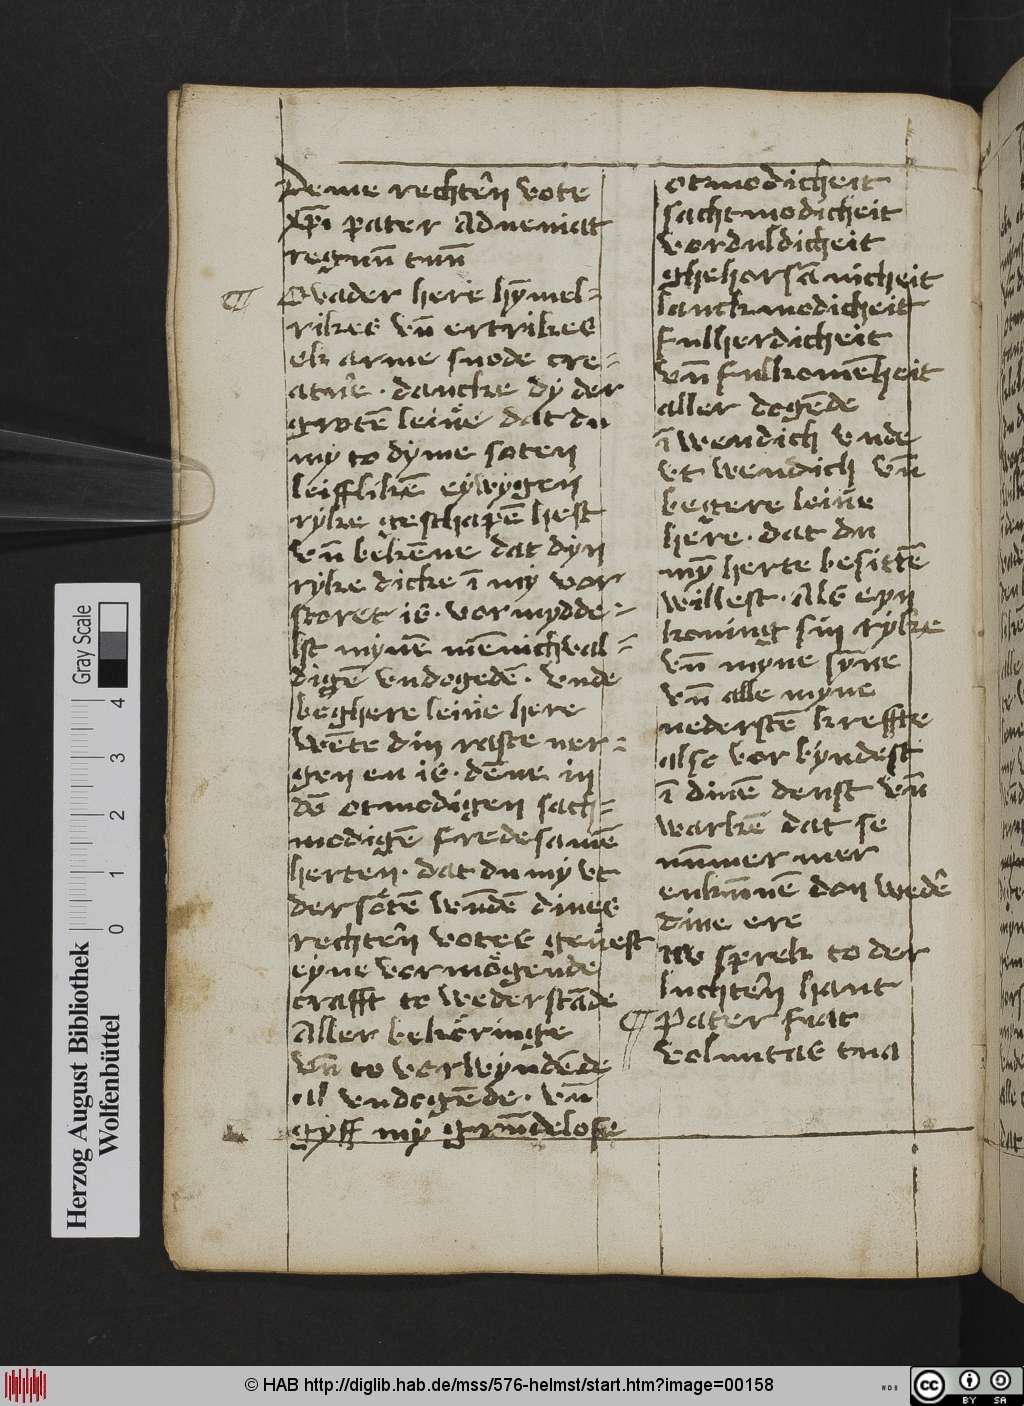 Deme rechtên vote
xp̄i pater Adueniat
regnū tuū
¶ O vader here hȳmel=
rikes vn̄ ertrikes
ek arme snode cre=
atuͤre · dancke dy der
grotē leiue dat du
my to dyme soten
leifflikē eywygen
ryke geschapē hest
vn̄ bekēne dat dyn
ryke dicke ī my vor
storet is · vormydde=
lst mynē mēnichual=
digē vndogedē · vnde
beghere leiue here
wēte din raste ner=
gen en is · dēne in
dē otmodigen sach=
modigē fredesamē
herten · dat du my vt
der sotē wndē dines
rechtên votes geuest
eyne vormogēde
crafft to wederstāde
Aller bekoringe
vn̄ to vorwyndēde
al vndogēde · vn̄
gyff my grūdelose
otmodicheit
sachtmodicheit
vorduldicheit
ghehorsā nicheit
lanckmodicheit
fulherdicheit
vn̄ fulkomēheit
aller dogēde
ī wendich vnde
vt wendich vn̄
begere leiue
here · dat du
mȳ herte besittē
willest · Als eyn
koning sin ryke
vn̄ myne sȳne
vn̄ alle myne
nederstē kreffte
also vorbyndest
ī dinē denst vn̄
warkē dat se
nūmer mer
enkūnē don wedê
dine ere
Nv sprek to der
luchtên hant
¶ Pater fiat
voluntas tua
Gray Scale
0 1 2 3 4
Herzog August Bibliothek
Wolfenbüttel
© HAB http://diglib.hab.de/mss/576-helmst/start.htm?image=00158
cc BY SA